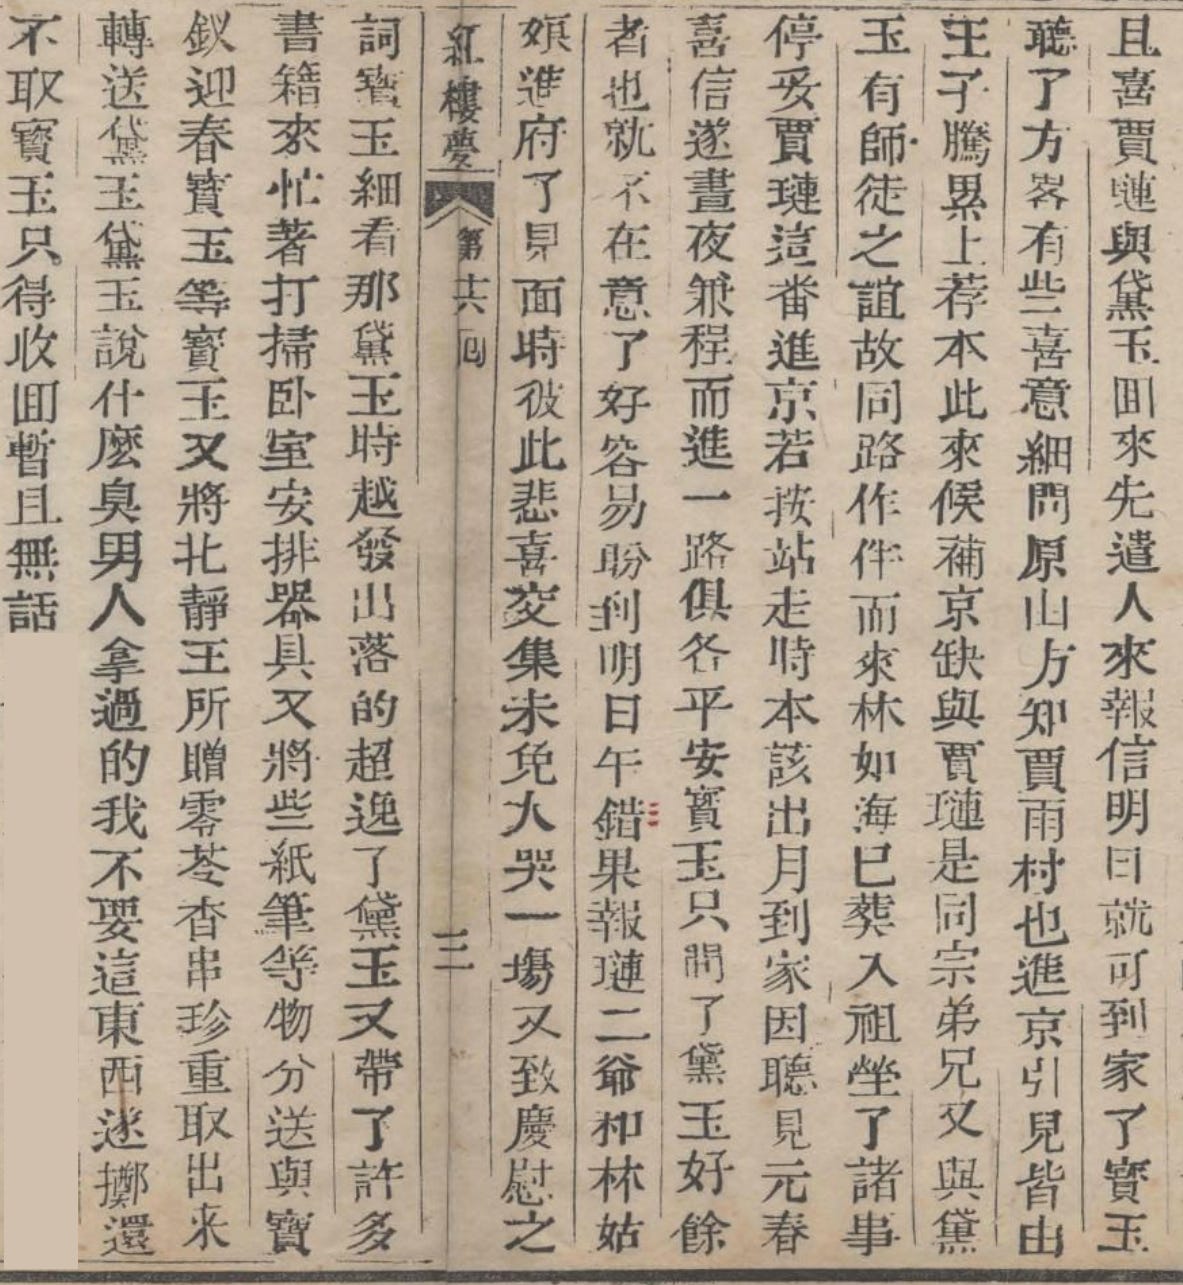 且喜賈璉與黛玉囬來先遣人來報信明日就可到家了寳玉
聽了方畧有些喜意細問原山方知賈雨村也進京引見皆由
王子騰累上荐本此來候補京缺與賈璉是同宗弟兄又與黛
玉有師徒之誼故同路作伴而來林如海已葬入祖塋了諸事
停妥賈璉這番進京若按站走時本該出月到家因聽見元春
喜信遂晝夜兼程而進一路俱各平安寳玉只問了黛玉好餘
者也就不在意了好容易盼到明日午錯果報璉二爺和林姑
娘進府了見面時彼此悲喜交集未免大哭一塲又致慶慰之
紅樓夢 第十六囬 三
詞寳玉細看那黛玉時越發出落的超逸了黛玉又帶了許多
書籍來忙著打掃卧室安排器具又將些紙筆等物分送與寳
釵迎春寳玉等寳玉又將北靜王所贈零苓香串珍重取出来
轉送黛玉黛玉說什麽臭男人拿過的我不要這東西遂擲還
不取寳玉只得收囬暫且無話